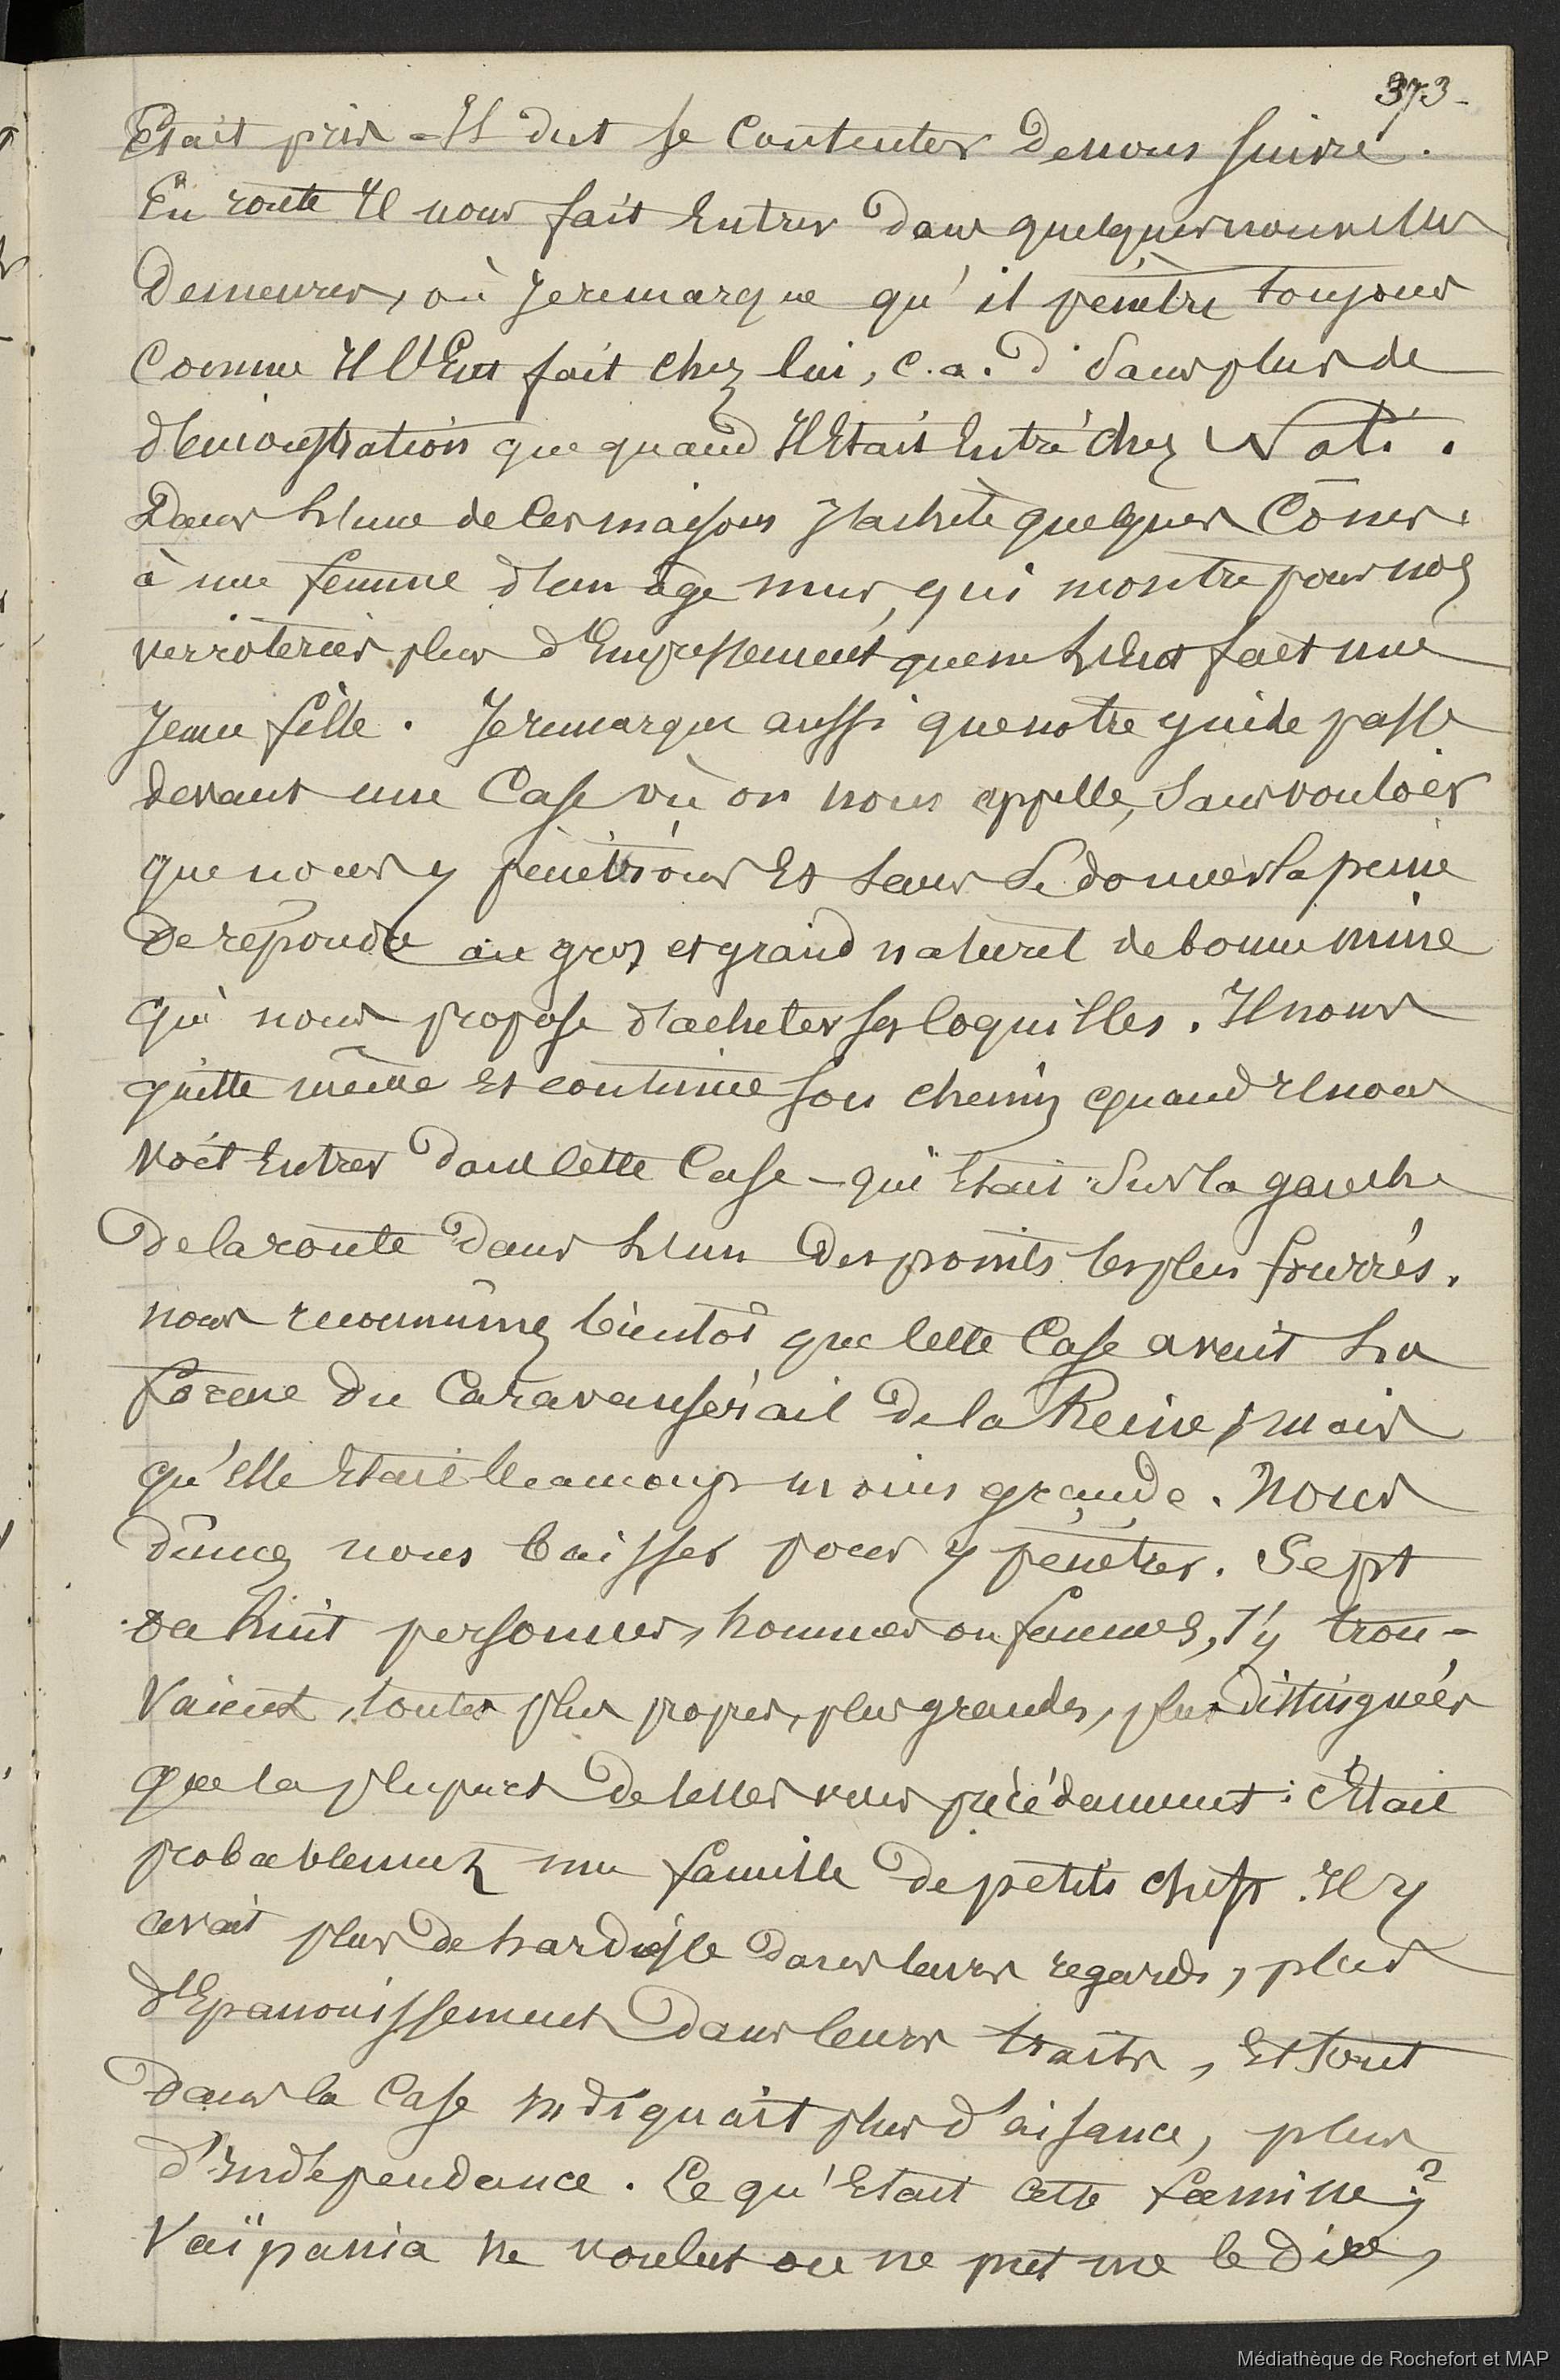 373-
Etait pris - Il dut se contenter de nous suivre.
En route Il nous fait Entrer dans quelques nouvelles
Demeures, où Je remarque qu'il pénètre toujours
Comme Il l'Eut fait chez lui, c.a.d. Sans plus de
démonstration que quand Il Etait Entré chez Vati.
Dans l'une de ces maisons J'achète quelques Cônes.
à une femme d'un âge mur, qui montre pour nos
verroteries plus d'Empressement que ne l'Eut fait une
Jeune fille. Je remarque aussi que notre guide passe
devant une Case où on nous appelle, Sans vouloir
que nous y pénétrions Et Sans Se donner la peine
De répondre au gros et grand naturel de bonne mine
qui nous propose d'acheter ses Coquilles. Il nous
quitte même Et continue son chemin quand Il nous
voit Entrer dans Cette Case - qui Etait Sur la gauche
De la route Dans l'un Des points les plus fourrés.
nous reconnûmes bientôt que Cette Case avait la
forme du Caravansérail De la Reine, mais
qu'Elle Etait beaucoup moins grande. Nous
dûmes nous baisser pour y pénétrer. Sept
ou huit personnes, hommes ou femmes, s'y trou-
vaient, toutes plus propres, plus grandes, plus Distinguées
que la plupart De Celles vues précédemment : C'Etait
probablement une famille De petits chefs. Il y
avait plus De hardiesse Dans leurs regards, plus
d'Epanouissement Dans leurs traits, Et tout
Dans la Case Indiquait plus d'aisance, plus
d'Indépendance. Ce qu'Etait cette famille ?
Vaïpania ne voulut ou ne put me le Dire,
Médiathèque de Rochefort et MAP